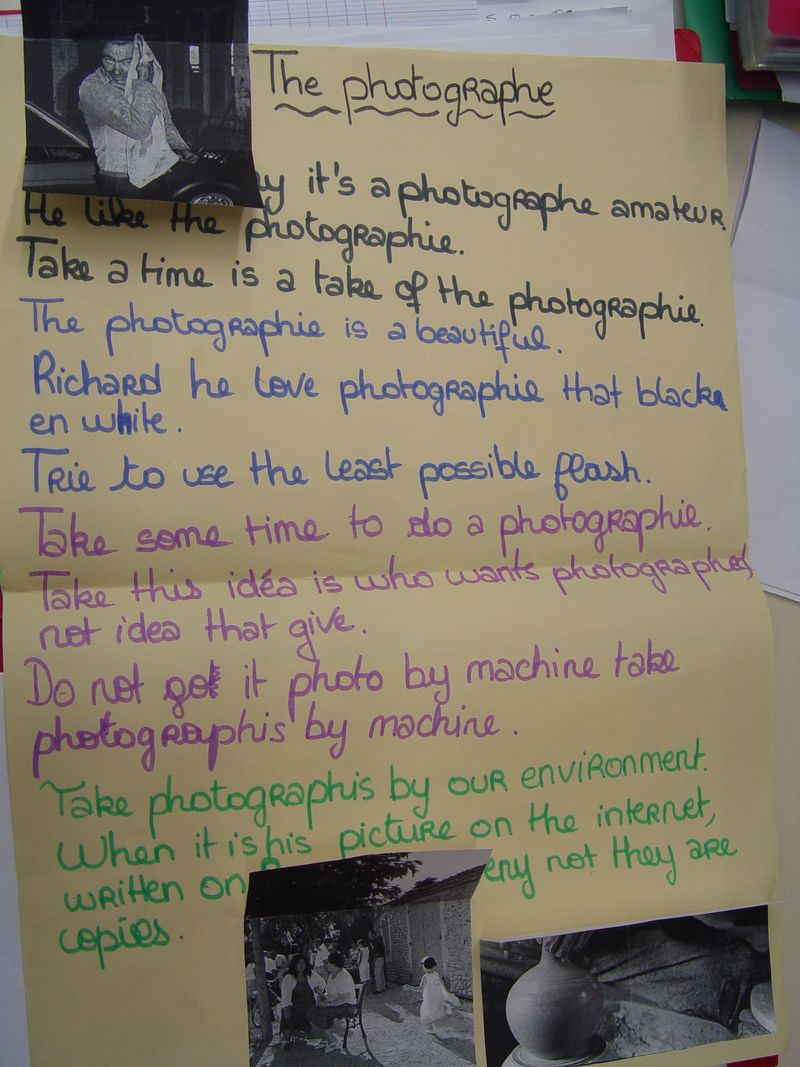 The photographe
it's a photographe amateur.
He like the photographie.
Take a time is a take of the photographie.
The photographie is a beautiful.
Richard he love photographie that black
en white.
Trie to use the least possible flash.
Take some time to do a photographie.
Take this idéa is who wants photographes,
not idea that give.
Do not got it photo by machine take
photographis by machine.
Take photographis by our environment.
When it is his picture on the internet,
written on not they are
copies.